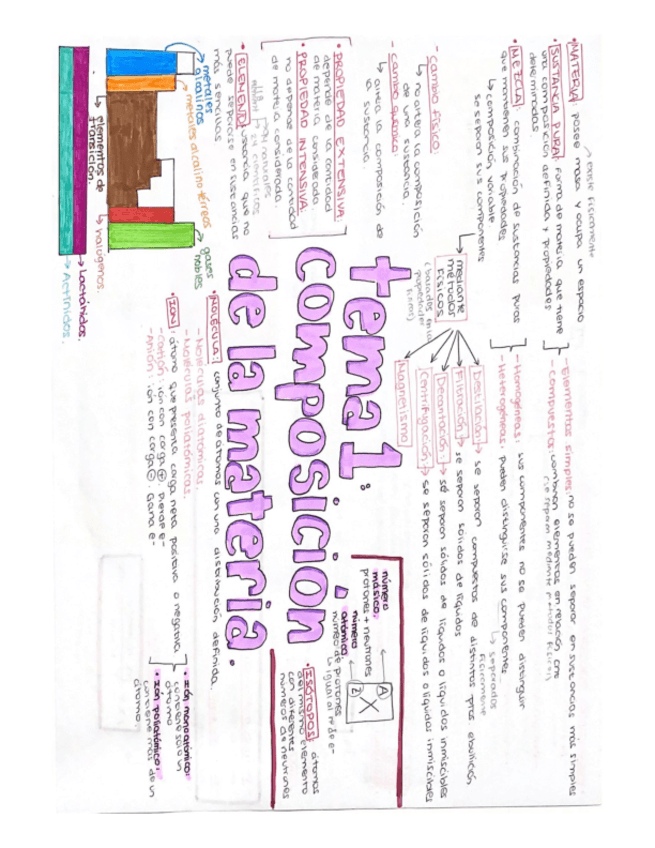 existe físicamente
• MATERIA: posee masa y ocupa un espacio
• SUSTANCIA PURA: forma de materia que tiene
una composición definida y propiedades
determinadas
— Elementos simples: no se pueden separar en sustancias más simples
— Compuestos: combinan elementos en relación
• MEZCLA: combinación de sustancias puras
que mantienen sus propiedades
↳ composición variable
se separan sus componentes
— Homogéneas: sus componentes no se pueden distinguir
— Heterogéneas: pueden distinguirse sus componentes
↳ separados
físicamente
mediante
métodos
físicos
(basados en las
propiedades
Destilación → se separan compuestos de distintos ptos ebullición
Filtración → se separan sólidos de líquidos
Decantación → se separan sólidos de líquidos o líquidos inmiscibles
Centrifugación → se separan sólidos de líquidos o líquidos inmiscibles
Magnetismo
- Cambio físico:
↳ no altera la composición
de una sustancia.
- Cambio químico:
↳ altera la composición de
la sustancia.
• PROPIEDAD EXTENSIVA:
depende de la cantidad
de materia considerada
• PROPIEDAD INTENSIVA:
no depende de la cantidad
de materia considerada.
118
24 científicos
• ELEMENTO: sustancia que no
puede separarse en sustancias
más sencillas
tema 1:
composición
de la materia.
número
másico:
protones + neutrones
número
atómico:
número de protones
↳ igual al nº de e-
A
Z
X
• ISÓTOPOS: átomos
del mismo elemento
con diferentes
números de neutrones
metales
alcalinos
metales alcalino térreos
↳ elementos de
transición.
↳ halógenos.
gases
nobles
→ Lactánidos.
→ Actínidos.
• MOLÉCULA: conjunto de átomos con una distribución definida.
- Moléculas diatómicas.
- Moléculas poliatómicas.
• IÓN: átomo que presenta carga neta positiva o negativa
- Catión: ión con carga ⊕. Pierde e-
- Anión: ión con carga ⊖. Gana e-
• Ión monoatómico:
contiene solo un
átomo
• Ión poliatómico:
contiene más de un
átomo.